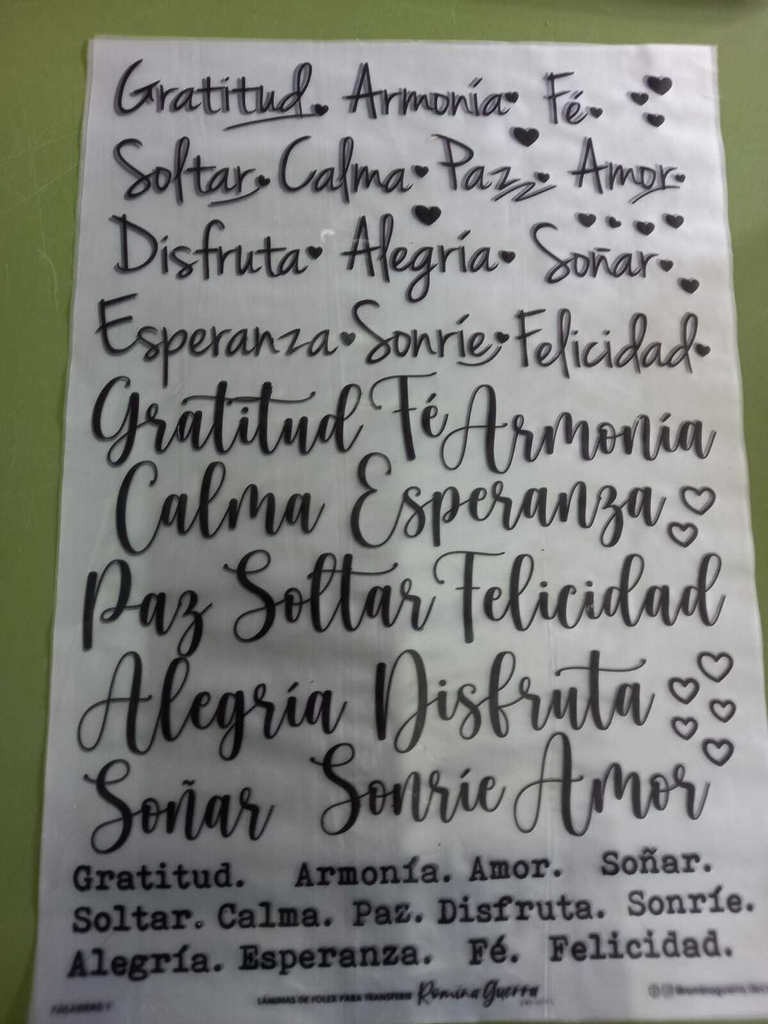 Gratitud. Armonía Fé.
Soltar. Calma Paz Amor
Disfruta Alegría Soñar
Esperanza Sonríe Felicidad
Gratitud Fé Armonía
Calma Esperanza
Paz Soltar Felicidad
Alegría Disfruta
Soñar Sonríe Amor
Gratitud. Armonía. Amor. Soñar.
Soltar. Calma. Paz. Disfruta. Sonríe.
Alegría. Esperanza. Fé. Felicidad.
LÁMINAS DE FOLEX PARA TRANSFERIR Romina Guerra